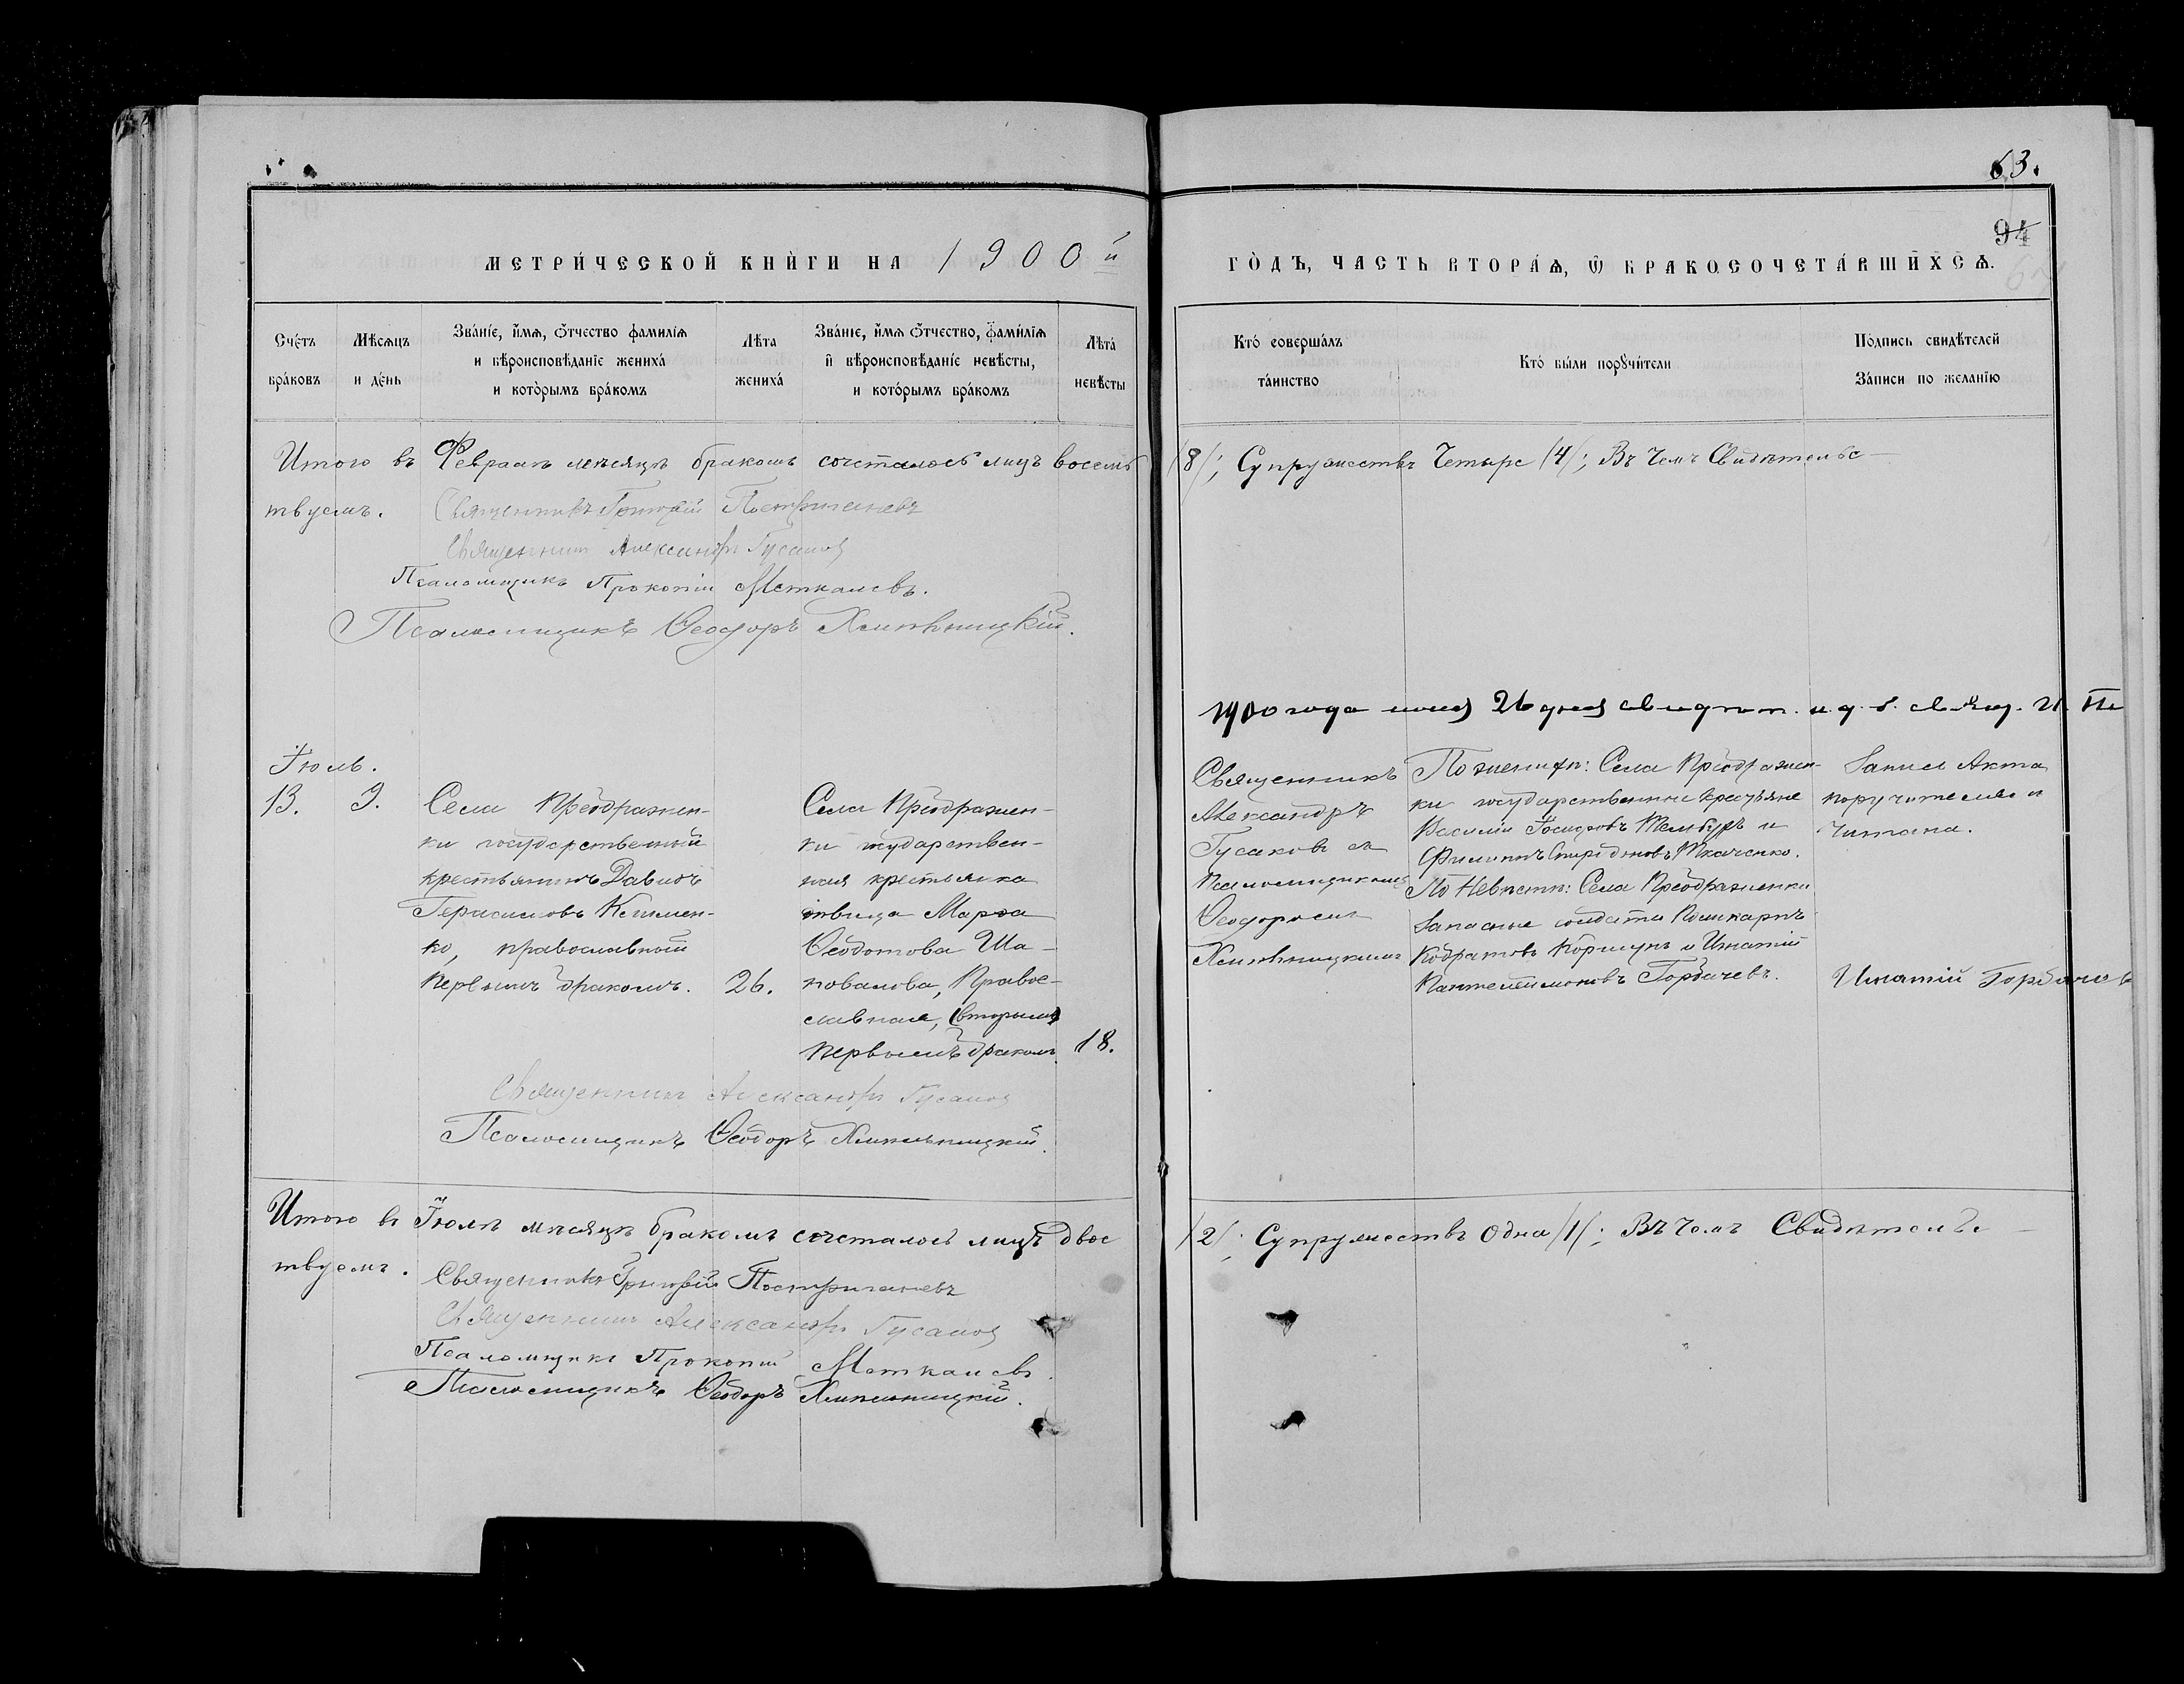 63.
94
МЕТРИ́ЧЕСКОЙ КНИ́ГИ НА 1900й
ГО́ДЪ, ЧАСТЬ ВТОРА́Ѧ, Ѿ БРАКОСОЧЕТА́ВШИХСѦ.
Сче́тъ
бра́ковъ
Мѣсѧцъ
и де́нь
Зва́нїе, и́мѧ, ѻ́тчество фамилїѧ
и вѣроисповѣданїе жениха́
и кото́рымъ бра́комъ
Лѣта
жениха́
Зва́нїе, и́мѧ ѻ́тчество, фами́лїѧ
и вѣроисповѣданїе невѣсты,
и кото́рымъ бра́комъ
Лѣта́
невѣ́сты
Кто́ соверша́лъ
та́инство
Кто́ бы́ли порꙋчи́тели
По́дпись свидѣ́телей
За́писи по жела́нїю
Итого въ Февралѣ мѣсяцѣ бракомъ сочеталось лицъ восемь /8/; Супружествъ Четыре /4/; Въ чемъ Свидѣтельс-
твуемъ. Священникъ Григорій
Священникъ Александръ Гусаковъ
Псаломщикъ Прокопій Меткалевъ.
Псаломщикъ Ѳеодоръ Хмельницкій.
1900 года іюня 26 дня свидѣт. и. д. б. свящ. И.
Іюль.
13. 9.
Села Преображен-
ки государственный
крестьянинъ Давидъ
Герасимовъ Климен-
ко, православный
первымъ бракомъ. 26.
Села Преображен-
ки государствен-
ная крестьянка
дѣвица Марѳа
Ѳеодотова Ша-
повалова, Право-
славная, (вторымъ)
первымъ бракомъ 18.
Священникъ
Александръ
Гусаковъ съ
Псаломщикомъ
Ѳеодоромъ
Хмельницкимъ
По женихѣ: Села Преображен-
ки государственные крестьяне
Василій Іосифовъ и
Филиппъ Спиридоновъ Ткаченко.
По Невѣстѣ: Села Преображенки
Запасные солдаты Поликарпъ
Кодратовъ Коршунъ и Игнатій
Пантелеймоновъ Горбачевъ.
Запись Акта
поручителямъ
читана.
Игнатій Горбачов
Священникъ Александръ Гусаковъ
Псаломщикъ Ѳеодоръ Хмельницкій.
Итого въ Іюлѣ мѣсяцѣ бракомъ сочеталось лицъ двое /2/; Супружествъ Одна /1/; Въ чемъ Свидѣтельс-
твуемъ. Священникъ Григорій
Священникъ Александръ Гусаковъ
Псаломщикъ Прокопій Меткалевъ.
Псаломщикъ Ѳеодоръ Хмельницкій.